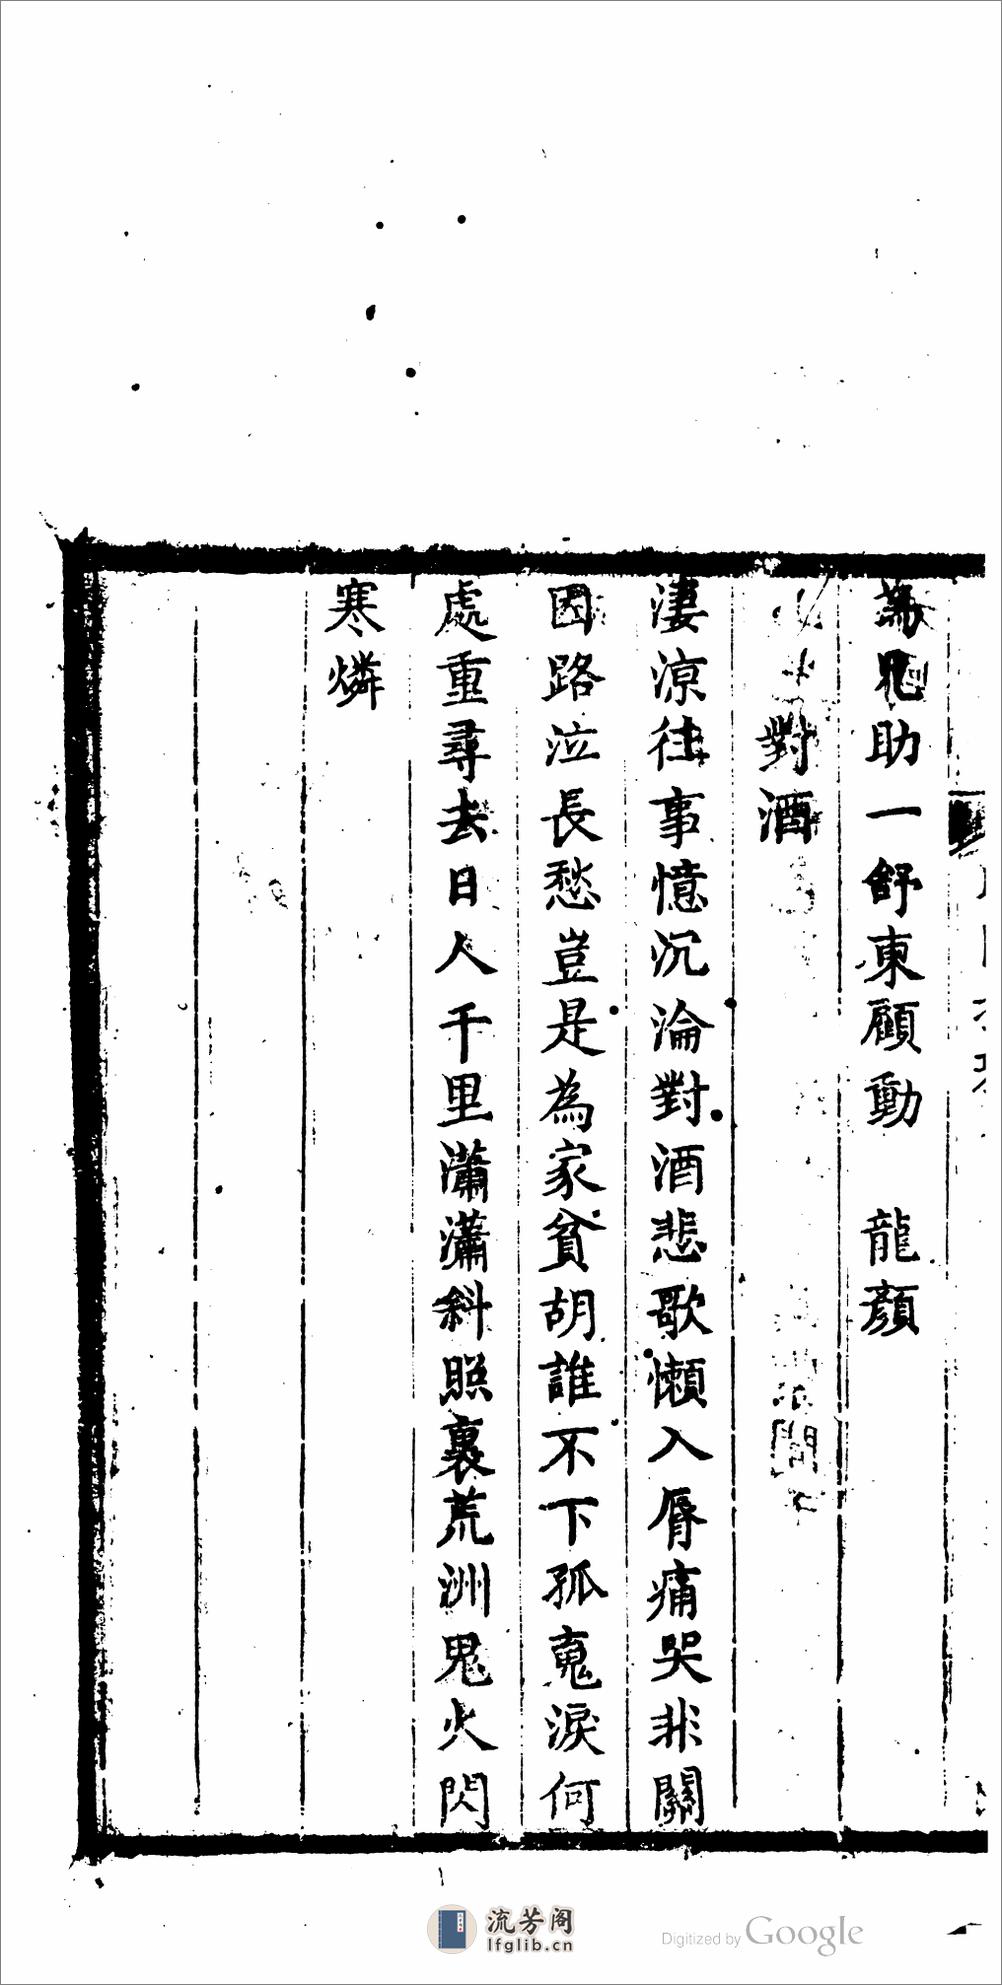 為助一舒東顧動　龍顏
對酒
淒涼往事憶沉淪對酒悲歌懶入脣痛哭非關
因路泣長愁豈是為家貧胡誰不下孤䰟淚何
處重尋去日人千里瀟瀟斜照裏荒洲鬼火閃
寒燐
流芳阁
lfglib.cn
Digitized by Google